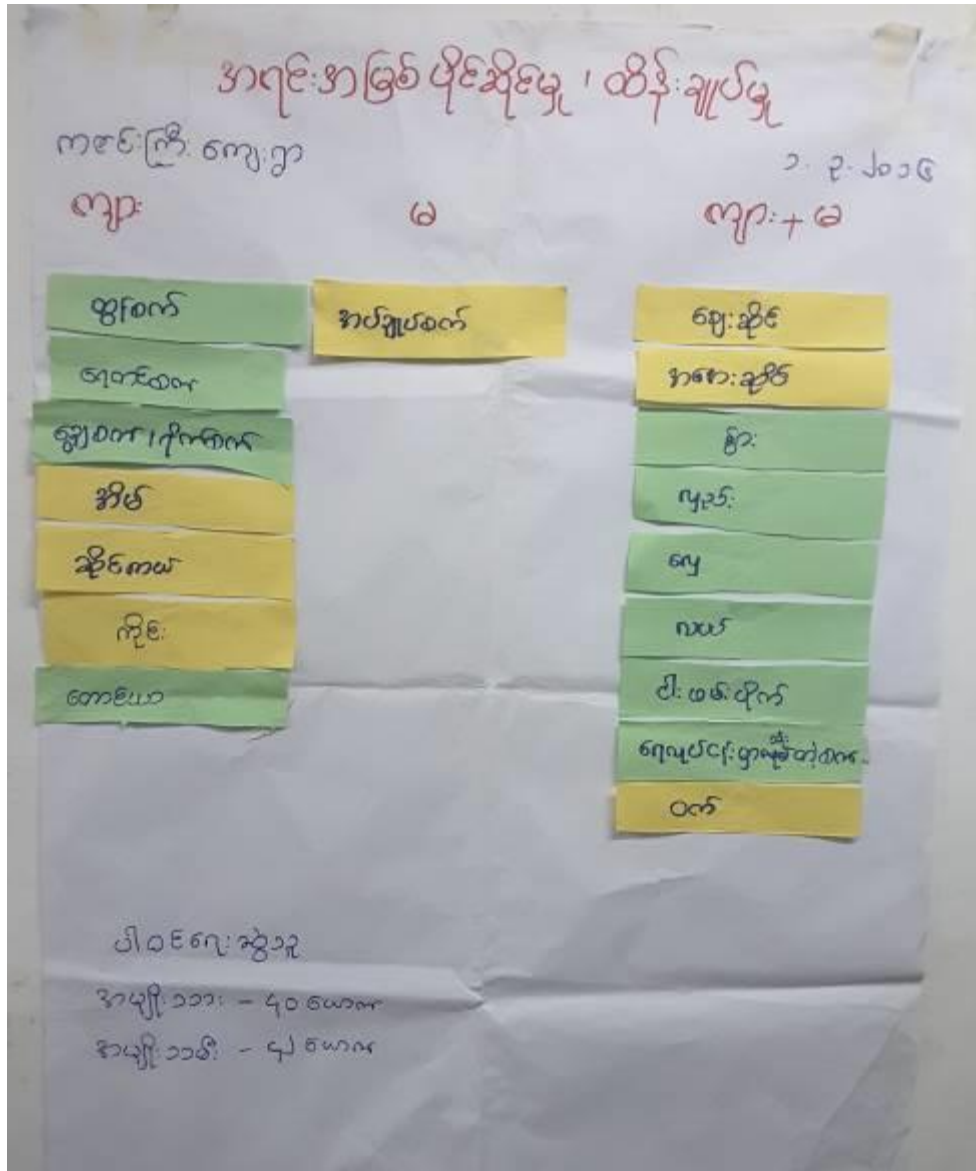 အရင်းအမြစ် ပိုင်ဆိုင်မှု ၊ ထိန်းချုပ်မှု
ကဇင်းကြီး ကျေးရွာ
၁. ၃. ၂၀၁၆
ကျား
မ
ကျား + မ
ထွန်စက်
ရေတင်စက်
ခြွေစက် ၊ ကြိတ်စက်
အိမ်
ဆိုင်ကယ်
ကိုင်း
တောင်ယာ
အပ်ချုပ်စက်
ဈေးဆိုင်
အစားဆိုင်
နွား
လှည်း
လှေ
လယ်
ငါးဖမ်းပိုက်
ရေလုပ်ငန်းမှာသုံးတဲ့စက်
ဝက်
ပါဝင်ရေးဆွဲသူ
အမျိုးသား - ၄၀ ယောက်
အမျိုးသမီး - ၄၂ ယောက်